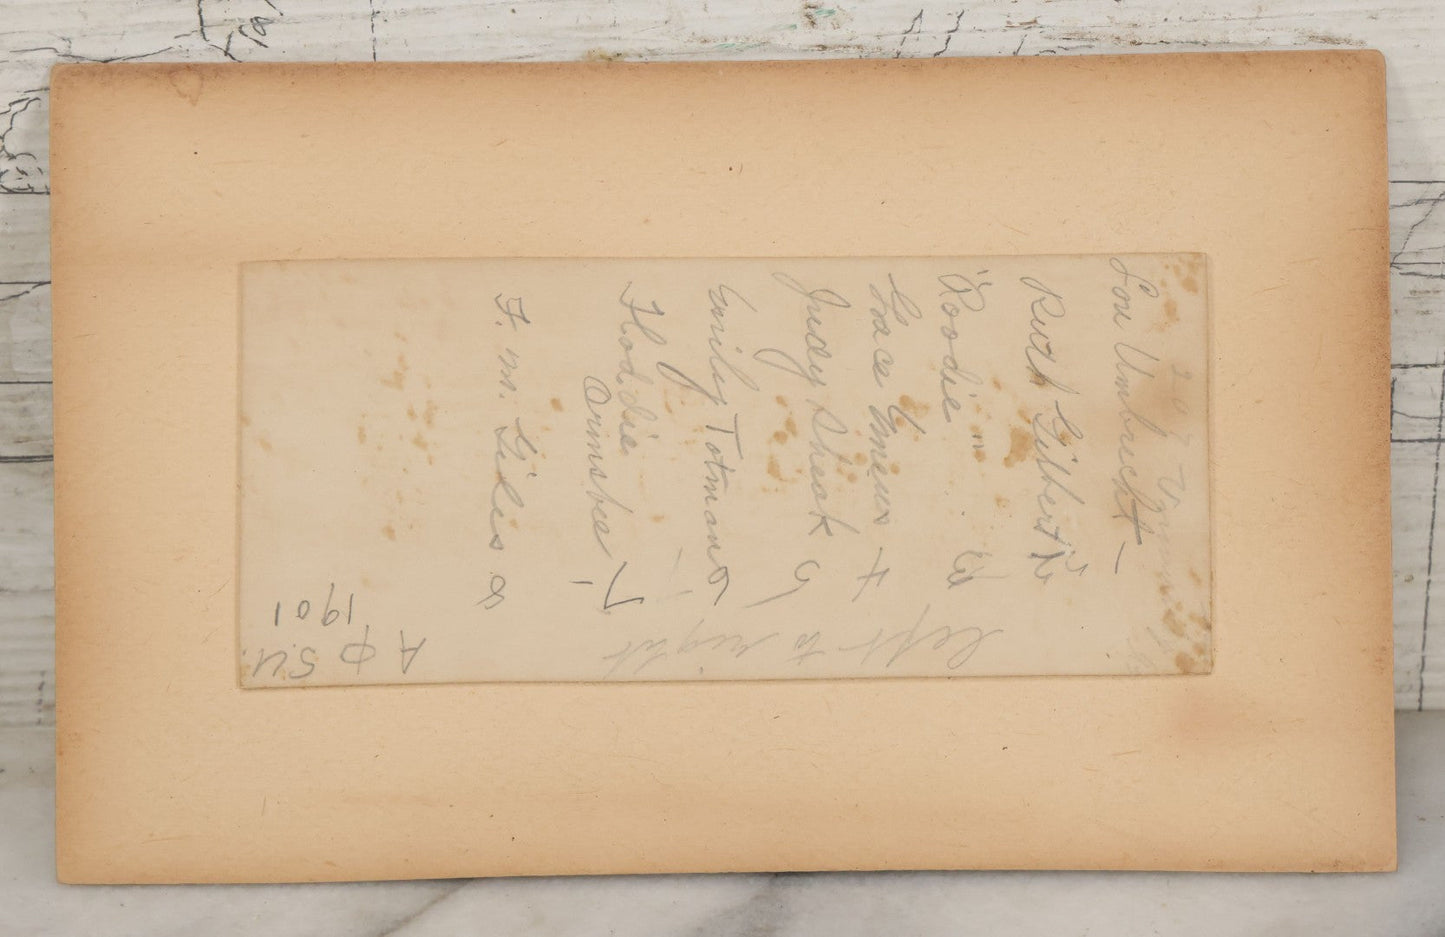 Lou Umbricht –
Ruth Gilbert
"Roodie"
Grace Emens +
Judy Shook
Emily Totman
Floddie
Ormsbee
F. M. Giles
left to right
A Φ S.U.
1901